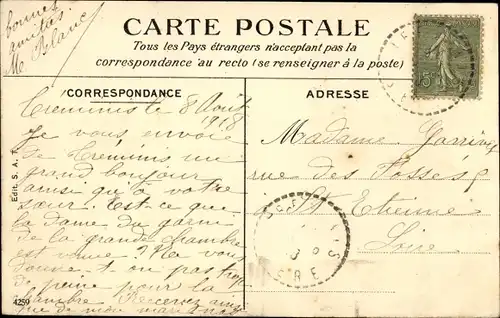 bonnes
amitiés
M Blanc
CARTE POSTALE
Tous les Pays étrangers n'acceptent pas la
correspondance au recto (se renseigner à la poste)
CORRESPONDANCE
ADRESSE
Creminis le 8 Août
1918
Je vous envoie
de Creminis un
grand bonjour
ainsi qu'à votre
sœur. Est-ce que
la dame du garni
de la grande chambre
est venue. Ne vous
donne-t-on pas trop
de peine pour la
chambre Recevez ainsi
que de mon mari
Madame
rue des Fossés 8
St Etienne
Loire
15
Edit. S. A. F.
4259
ISERE